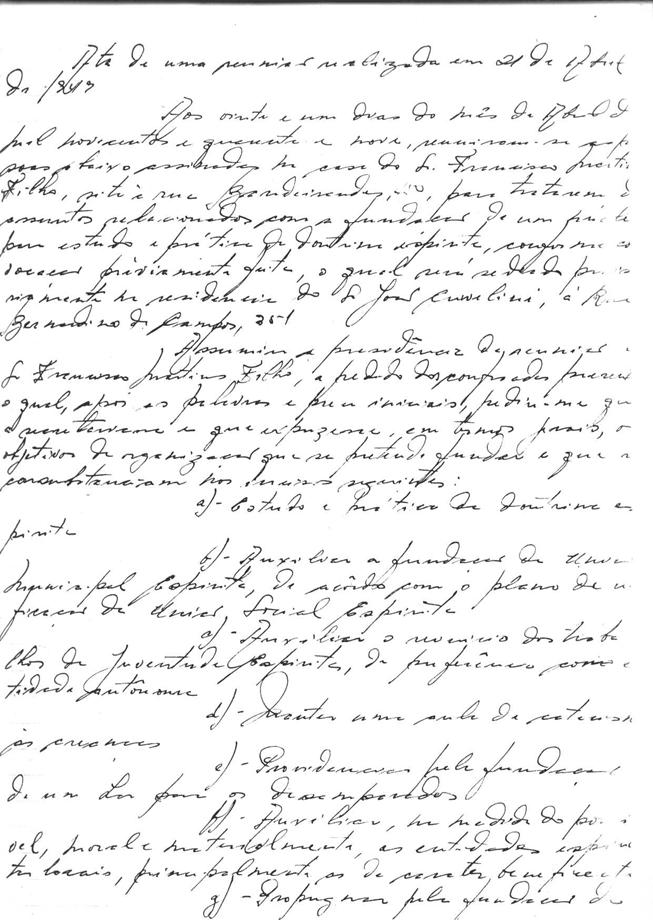 Ata de uma reunião realizada em 21 de Abril
de 1949
Aos vinte e um dias do mês de Abril d
mil novecentos e quarenta e nove, reuniram-se as p
soas abaixo assinadas na casa do Sr. Francisco Martin
Filho, sita à rua Bandeirantes, para tratarem d
assuntos relacionados com a fundação de um
para estudo e prática da doutrina espírita, conforme co
vocação préviamente feita, o qual será sediado provi
riamente na residencia do Sr José Cuvelini, à Rua
Bernardino de Campos, 351
Assumiu a presidência da reunião o
Sr Francisco Martins Filho, a pedido dos confrades presen
o qual, após as palavras e prece iniciais, pediu-me qu
a secretariasse e que expuzesse, em termos gerais, o
objetivos da organização que se pretende fundar e que
consubstanciam nos incisos seguintes:
a)- Estudo e Prática da doutrina es
pirita
b)- Auxiliar a fundação da União
Municipal Espírita, de acôrdo com o plano de u
ficação da União Social Espírita
c)- Auxiliar o reinicio dos traba
lhos da Juventude Espírita, de preferência como e
tidade autônoma
d)- Manter uma aula de catecism
às creanças
e)- Providenciar pela fundação
de um Lar para os desamparados
f)- Auxiliar, na medida do possi
vel, moral e materialmente, as entidades espiri
tas locais, principalmente as de carater beneficente
g)- Propugnar pela fundação de